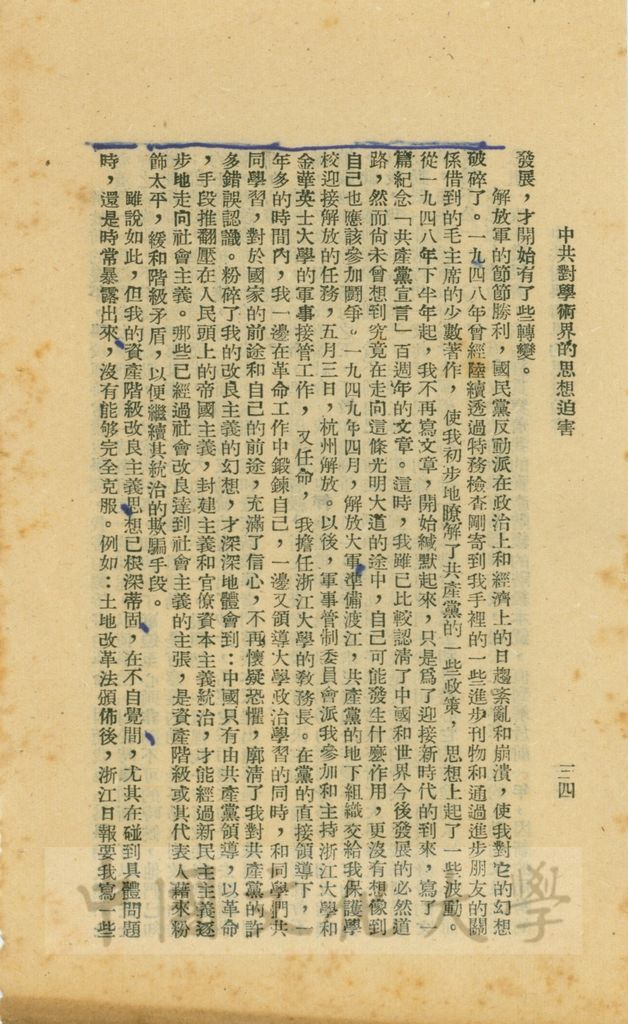 中共對學術界的思想迫害
三四
發展，才開始有了些轉變。
解放軍的節節勝利，國民黨反動派在政治上和經濟上的日趨紊亂和崩潰，使我對它的幻想
破碎了。一九四八年曾經陸續透過特務檢查剛寄到我手裡的一些進步刊物和通過進步朋友的關
係借到的毛主席的少數著作，使我初步地瞭解了共產黨的一些政策，思想上起了一些波動。
從一九四八年下半年起，我不再寫文章，開始緘默起來，只是爲了迎接新時代的到來，寫了一
篇紀念「共產黨宣言」百週年的文章。這時，我雖已比較認清了中國和世界今後發展的必然道
路，然而尚未曾想到究竟在走向這條光明大道的途中，自己可能發生什麼作用，更沒有想像到
自己也應該參加鬬爭。一九四九年四月，解放大軍準備渡江，共產黨的地下組織交給我保護學
校迎接解放的任務，五月三日，杭州解放。以後，軍事管制委員會派我參加和主持浙江大學和
金華英士大學的軍事接管工作，又任命，我擔任浙江大學的敎務長。在黨的直接領導下，一
年多的時間內，我一邊在革命工作中鍛鍊自己，一邊又領導大學政治學習的同時，和同學們共
同學習，對於國家的前途和自己的前途，充滿了信心，不再懷疑恐懼，廓清了我對共產黨的許
多錯誤認識。粉碎了我的改良主義的幻想，才深深地體會到：中國只有由共產黨領導，以革命
，手段推翻壓在人民頭上的帝國主義，封建主義和官僚資本主義統治，才能經過新民主主義逐
步地走向社會主義。那些已經過社會改良達到社會主義的主張，是資產階級或其代表人藉來粉
飾太平，緩和階級矛盾，以便繼續其統治的欺騙手段。
雖說如此，但我的資產階級改良主義思想已根深蒂固，在不自覺間，尤其在碰到具體問題
時，還是時常暴露出來，沒有能够完全克服。例如：土地改革法頒佈後，浙江日報要我寫一些